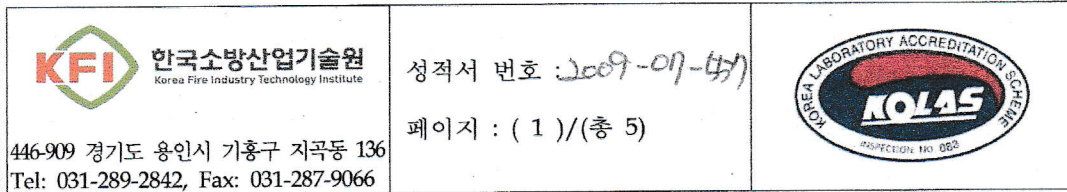 KFI
한국소방산업기술원
Korea Fire Industry Technology Institute
446-909 경기도 용인시 기흥구 지곡동 136
Tel: 031-289-2842, Fax: 031-287-9066
성적서 번호 : 2009-07-
페이지 : ( 1 )/(총 5)
KOREA LABORATORY ACCREDITATION SCHEME
KOLAS
INSPECTION NO 083